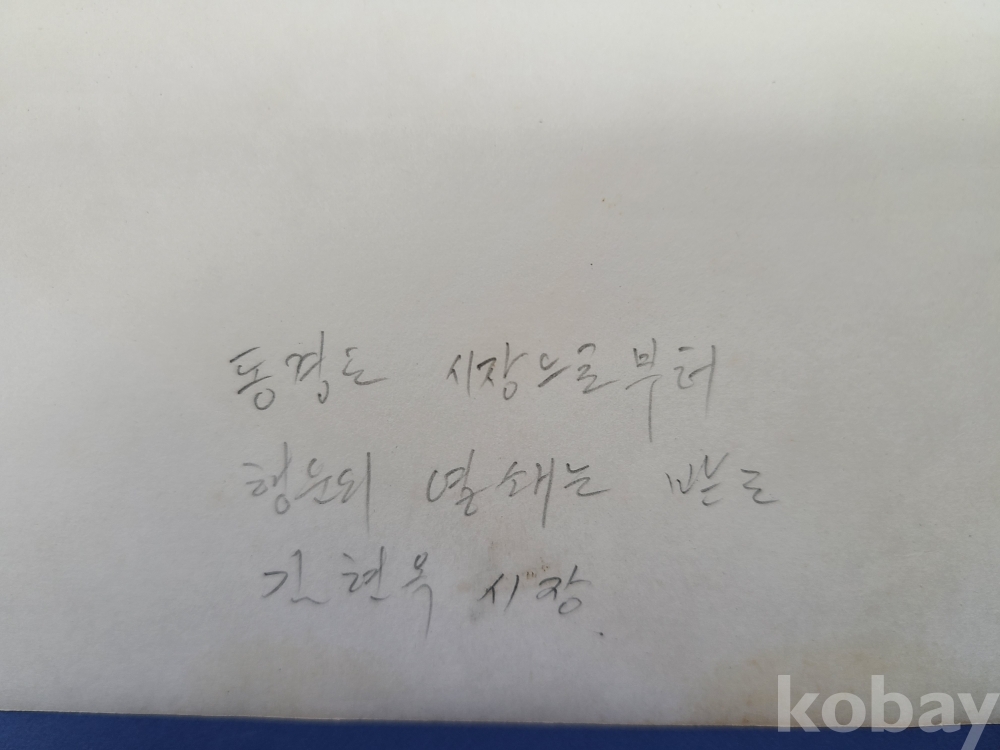 동경도 시장으로부터
행운의 열쇄는 받는
김현옥 시장.
kobay